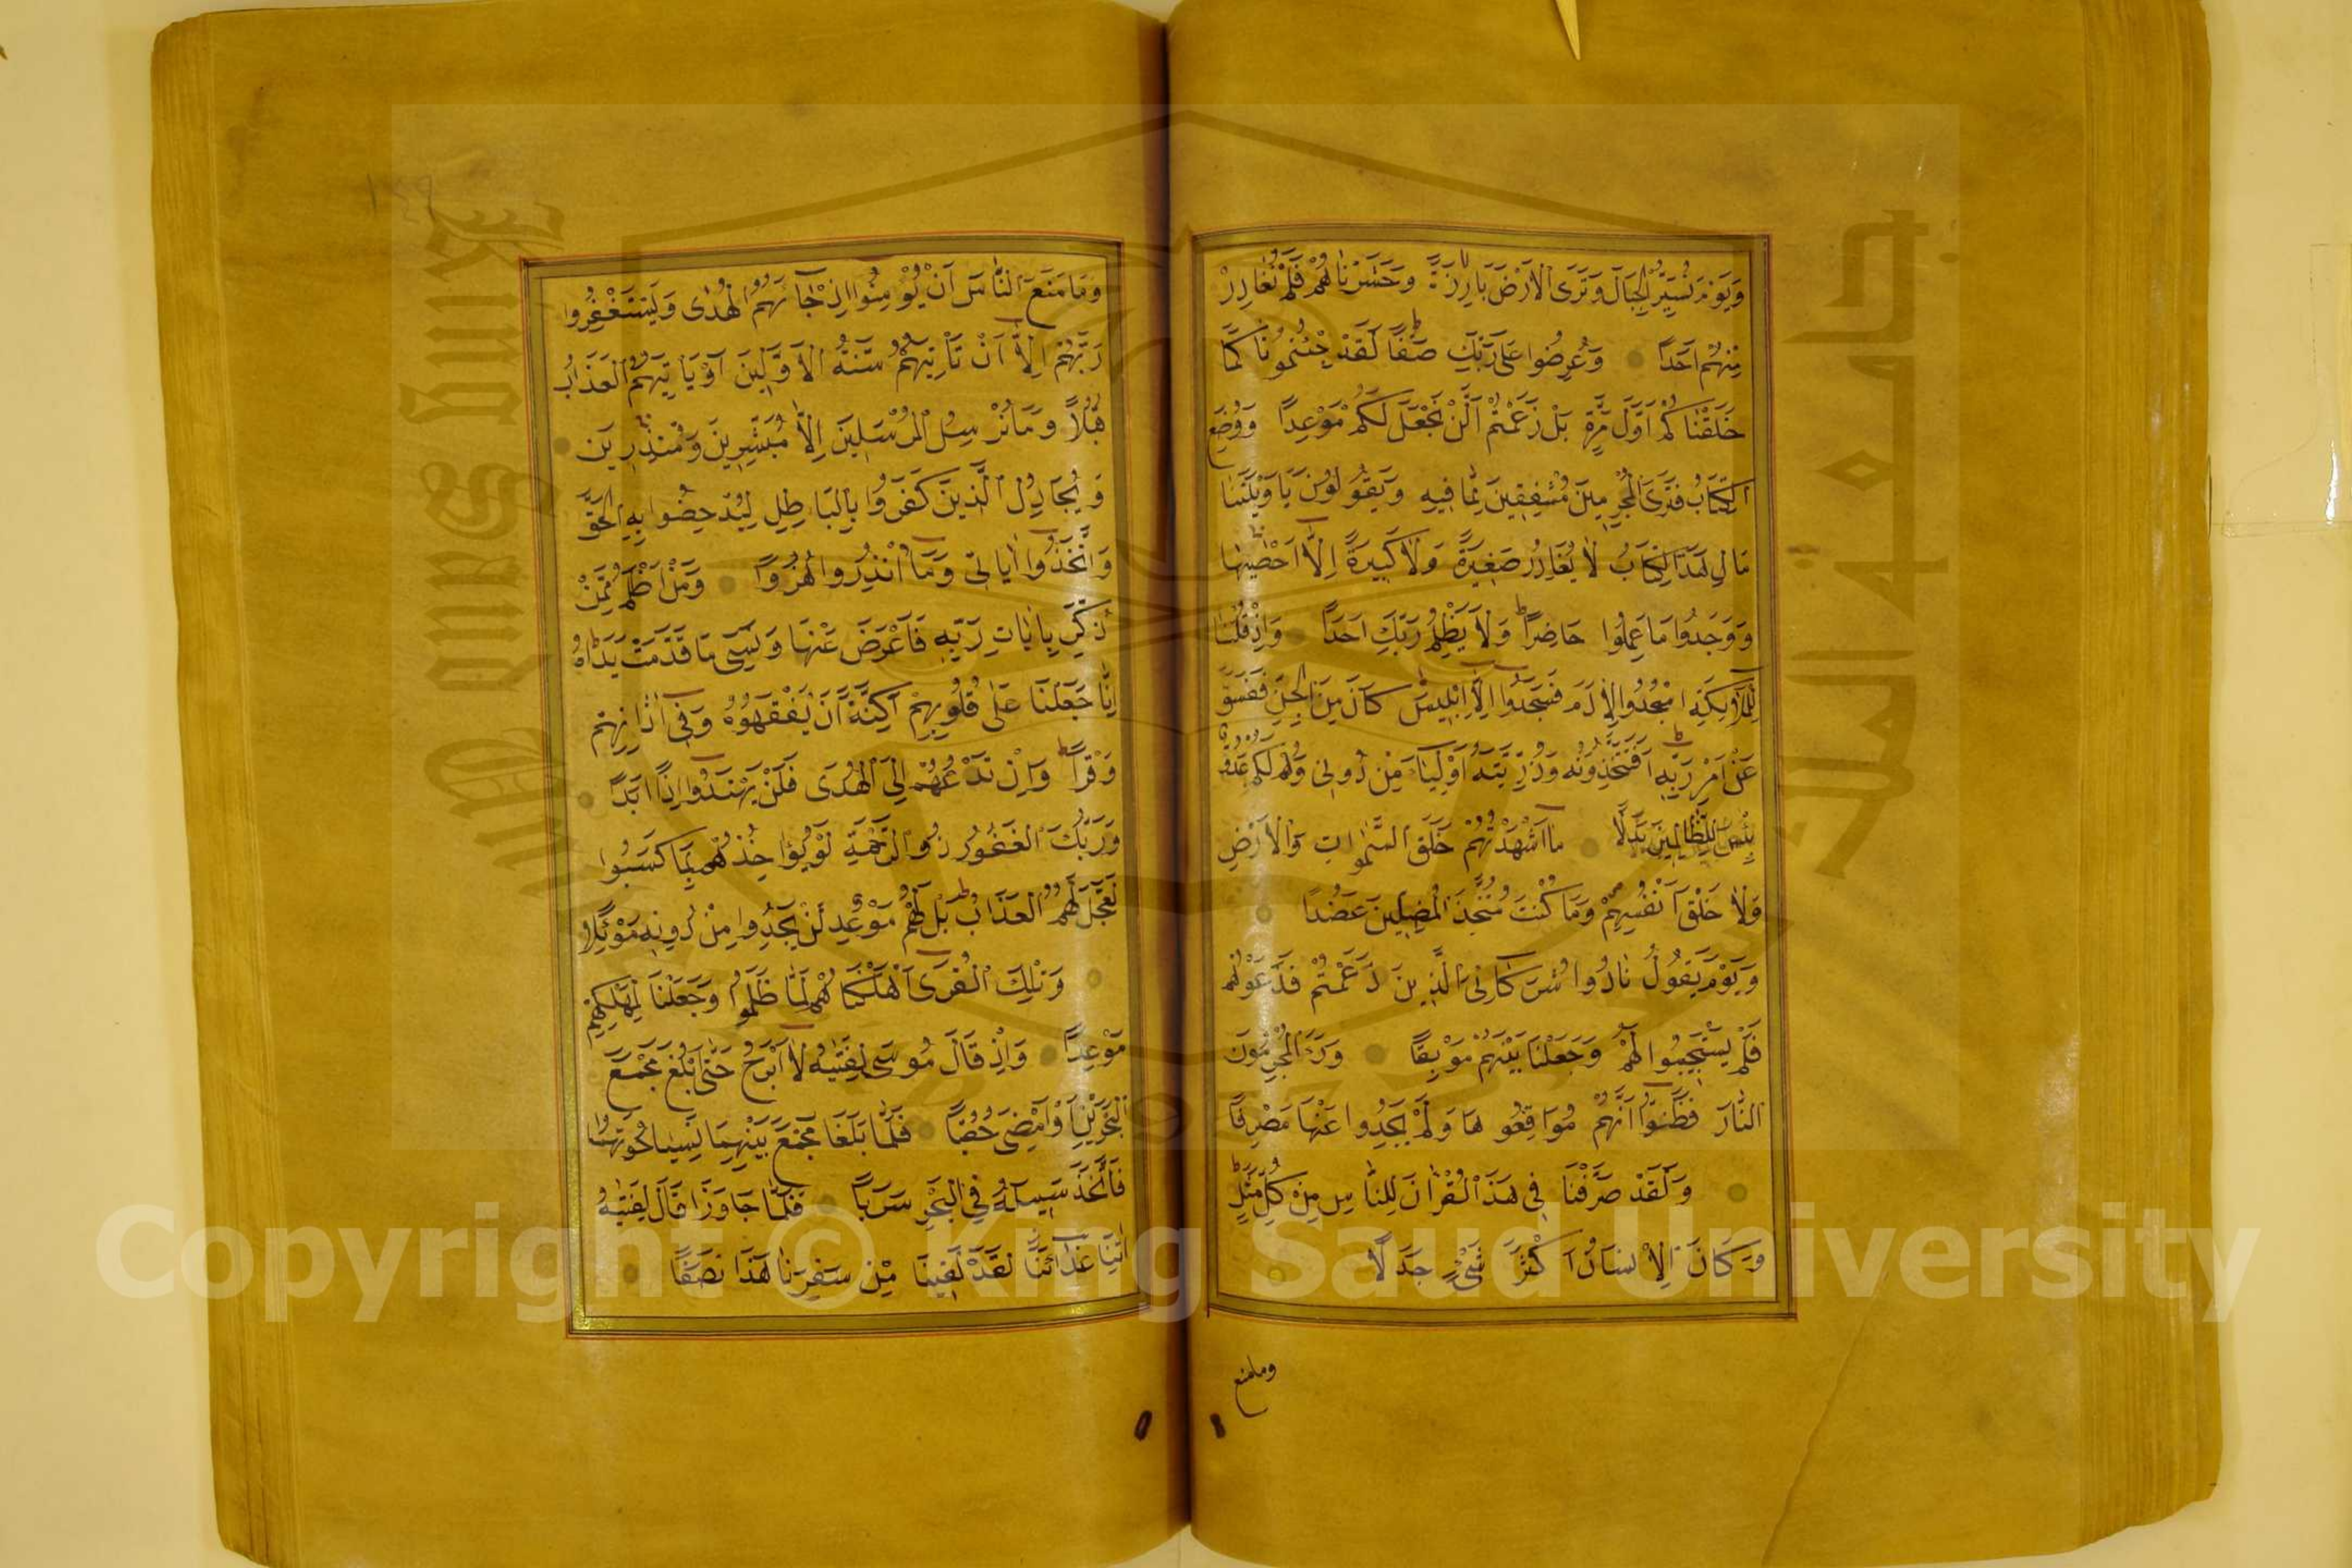 وَيَوْمَ نُسَيِّرُ الْجِبَالَ وَتَرَى الْاَرْضَ بَارِزَةً وَحَشَرْنَاهُمْ فَلَمْ نُغَادِرْ
مِنْهُمْ اَحَدًا وَعُرِضُوا عَلَى رَبِّكَ صَفًّا لَقَدْ جِئْتُمُونَا كَمَا
خَلَقْنَاكُمْ اَوَّلَ مَرَّةٍ بَلْ زَعَمْتُمْ اَلَّنْ نَجْعَلَ لَكُمْ مَوْعِدًا وَوُضِعَ
الْكِتَابُ فَتَرَى الْمُجْرِمِينَ مُشْفِقِينَ مِمَّا فِيهِ وَيَقُولُونَ يَا وَيْلَتَنَا
مَالِ هَذَا الْكِتَابِ لَا يُغَادِرُ صَغِيرَةً وَلَا كَبِيرَةً اِلَّا اَحْصٰيهَا
وَوَجَدُوا مَا عَمِلُوا حَاضِرًا وَلَا يَظْلِمُ رَبُّكَ اَحَدًا وَاِذْ قُلْنَا
لِلْمَلَائِكَةِ اسْجُدُوا لِاٰدَمَ فَسَجَدُوا اِلَّا اِبْلِيسَ كَانَ مِنَ الْجِنِّ فَفَسَقَ
عَنْ اَمْرِ رَبِّهِ اَفَتَتَّخِذُونَهُ وَذُرِّيَّتَهُ اَوْلِيَاءَ مِنْ دُونِي وَهُمْ لَكُمْ عَدُوٌّ
بِئْسَ لِلظَّالِمِينَ بَدَلًا مَا اَشْهَدْتُهُمْ خَلْقَ السَّمٰوَاتِ وَالْاَرْضِ
وَلَا خَلْقَ اَنْفُسِهِمْ وَمَا كُنْتُ مُتَّخِذَ الْمُضِلِّينَ عَضُدًا
وَيَوْمَ يَقُولُ نَادُوا شُرَكَائِيَ الَّذِينَ زَعَمْتُمْ فَدَعَوْهُمْ
فَلَمْ يَسْتَجِيبُوا لَهُمْ وَجَعَلْنَا بَيْنَهُمْ مَوْبِقًا وَرَءَا الْمُجْرِمُونَ
النَّارَ فَظَنُّوا اَنَّهُمْ مُوَاقِعُوهَا وَلَمْ يَجِدُوا عَنْهَا مَصْرِفًا
وَلَقَدْ صَرَّفْنَا فِي هَذَا الْقُرْاٰنِ لِلنَّاسِ مِنْ كُلِّ مَثَلٍ
وَكَانَ الْاِنْسَانُ اَكْثَرَ شَيْءٍ جَدَلًا
ومامنع
١٤٩
وَمَا مَنَعَ النَّاسَ اَنْ يُؤْمِنُوا اِذْ جَاءَهُمُ الْهُدٰى وَيَسْتَغْفِرُوا
رَبَّهُمْ اِلَّا اَنْ تَأْتِيَهُمْ سُنَّةُ الْاَوَّلِينَ اَوْ يَاْتِيَهُمُ الْعَذَابُ
قُبُلًا وَمَا نُرْسِلُ الْمُرْسَلِينَ اِلَّا مُبَشِّرِينَ وَمُنْذِرِينَ
وَيُجَادِلُ الَّذِينَ كَفَرُوا بِالْبَاطِلِ لِيُدْحِضُوا بِهِ الْحَقَّ
وَاتَّخَذُوا اٰيَاتِي وَمَا اُنْذِرُوا هُزُوًا وَمَنْ اَظْلَمُ مِمَّنْ
ذُكِّرَ بِاٰيَاتِ رَبِّهِ فَاَعْرَضَ عَنْهَا وَنَسِيَ مَا قَدَّمَتْ يَدَاهُ
اِنَّا جَعَلْنَا عَلٰى قُلُوبِهِمْ اَكِنَّةً اَنْ يَفْقَهُوهُ وَفِي اٰذَانِهِمْ
وَقْرًا وَاِنْ تَدْعُهُمْ اِلَى الْهُدَى فَلَنْ يَهْتَدُوا اِذًا اَبَدًا
وَرَبُّكَ الْغَفُورُ ذُو الرَّحْمَةِ لَوْ يُؤَاخِذُهُمْ بِمَا كَسَبُوا
لَعَجَّلَ لَهُمُ الْعَذَابَ بَلْ لَهُمْ مَوْعِدٌ لَنْ يَجِدُوا مِنْ دُونِهِ مَوْئِلًا
وَتِلْكَ الْقُرَى اَهْلَكْنَاهُمْ لَمَّا ظَلَمُوا وَجَعَلْنَا لِمَهْلِكِهِمْ
مَوْعِدًا وَاِذْ قَالَ مُوسَى لِفَتٰيهُ لَا اَبْرَحُ حَتَّى اَبْلُغَ مَجْمَعَ
الْبَحْرَيْنِ اَوْ اَمْضِيَ حُقُبًا فَلَمَّا بَلَغَا مَجْمَعَ بَيْنِهِمَا نَسِيَا حُوتَهُمَا
فَاتَّخَذَ سَبِيلَهُ فِي الْبَحْرِ سَرَبًا فَلَمَّا جَاوَزَا قَالَ لِفَتٰيهُ
اٰتِنَا غَدَاءَنَا لَقَدْ لَقِينَا مِنْ سَفَرِنَا هَذَا نَصَبًا
King Saud University
جامعة الملك سعود
Copyright © King Saud University